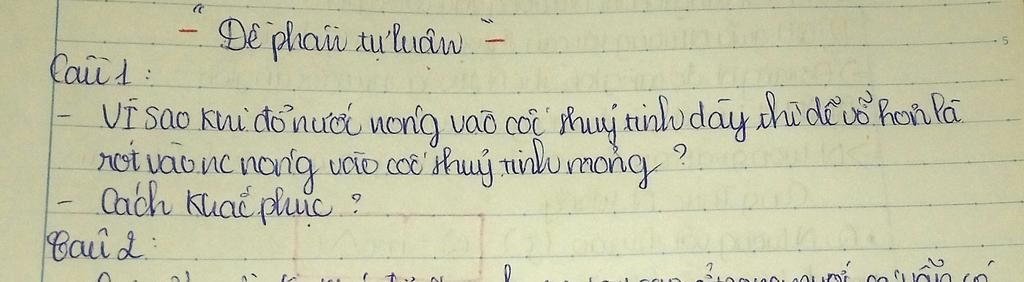 - "Đề phần tự luận" -
Câu 1:
- Vì sao khi đổ nước nóng vào cốc thuỷ tinh dày thì dễ vỡ hơn là
rót vào nc nóng vào cốc thuỷ tinh mỏng?
- Cách khắc phục?
Câu 2: